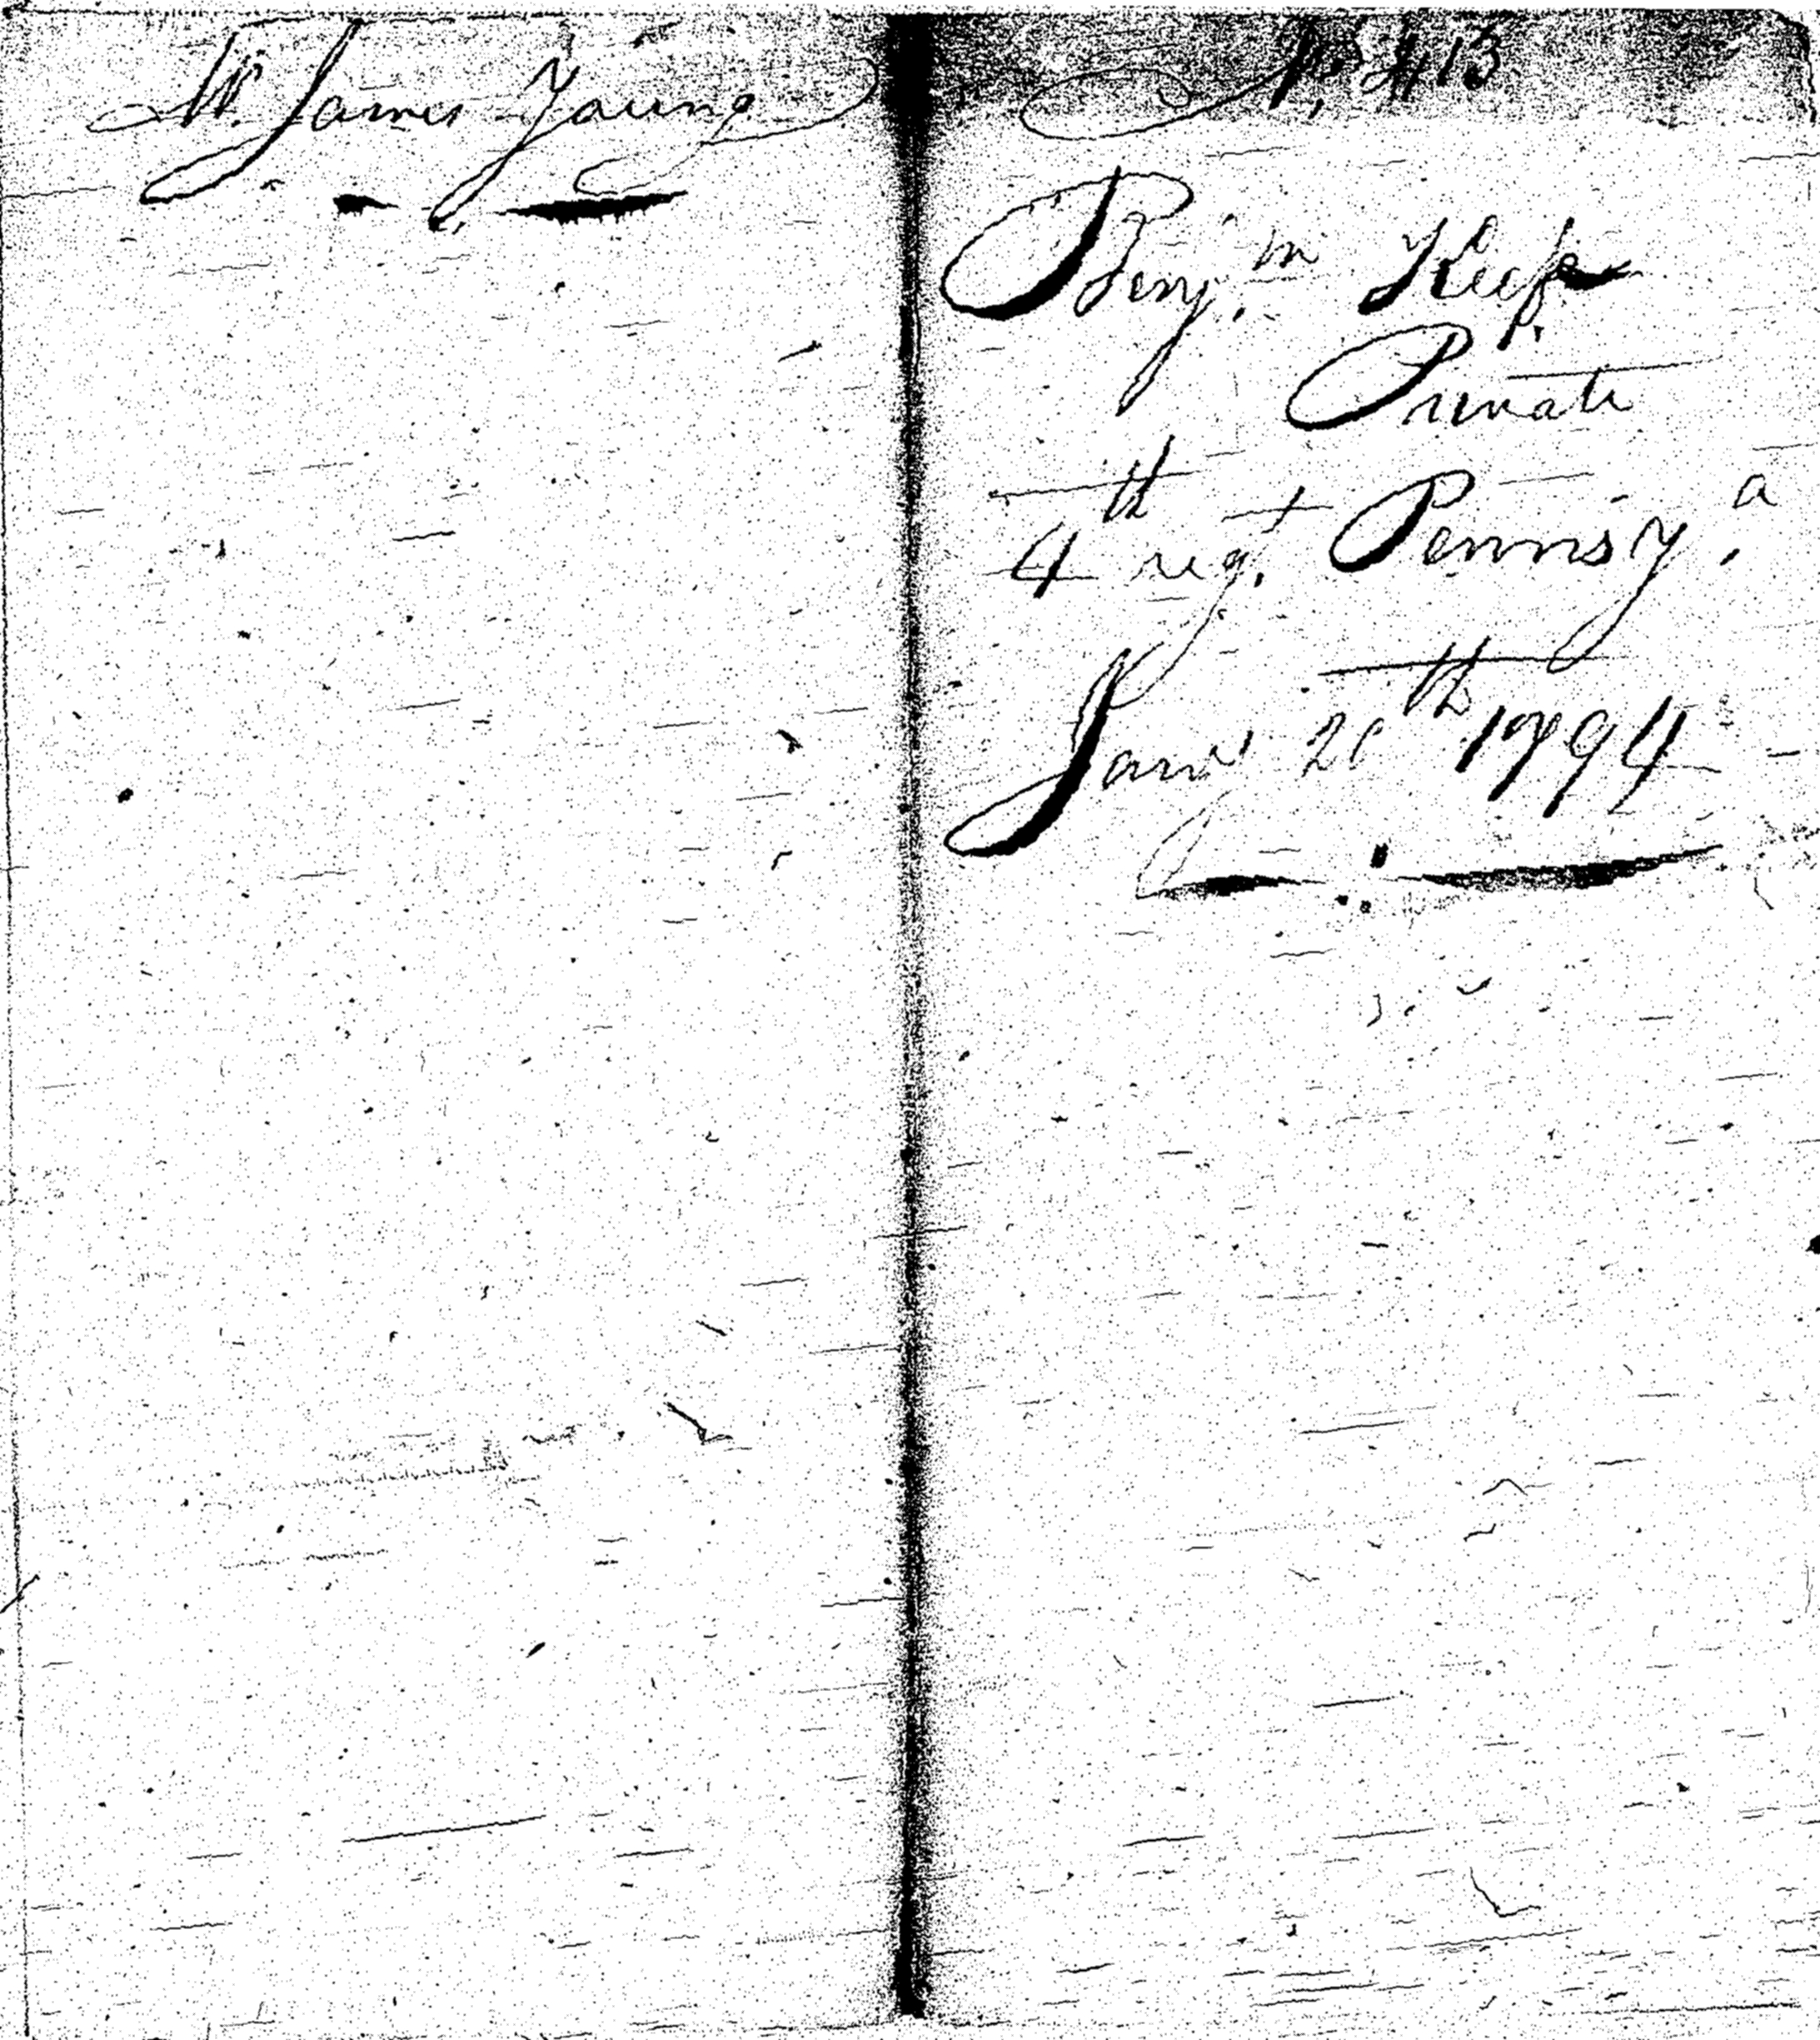 Mr. James Young
No 413
Benj.m Keep
Private
4th regt. Pennsy.a
Jany 20th 1794